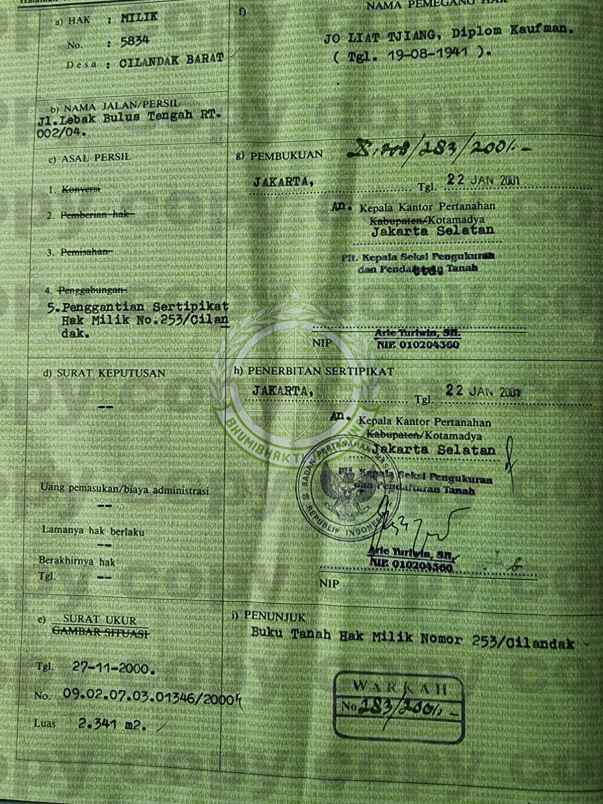 a) HAK : MILIK
No. : 5834
Desa : CILANDAK BARAT
b) NAMA JALAN/PERSIL
Jl.Lebak Bulus Tengah RT.
002/04.
c) ASAL PERSIL
1. Konversi
2. Pemberian hak
3. Pemisahan
4. Penggabungan
5.Penggantian Sertipikat
Hak Milik No.253/Cilan
dak.
d) SURAT KEPUTUSAN
--
Uang pemasukan/biaya administrasi
--
Lamanya hak berlaku
--
Berakhirnya hak
Tgl. --
e) SURAT UKUR
GAMBAR SITUASI
Tgl. 27-11-2000.
No. 09.02.07.03.01346/2000
Luas 2.341 m2.
f) NAMA PEMEGANG HAK
JO LIAT TJIANG, Diplom Kaufman.
( Tgl. 19-08-1941 ).
g) PEMBUKUAN
JAKARTA, Tgl. 22 JAN 2001
An. Kepala Kantor Pertanahan
Kabupaten/Kotamadya
Jakarta Selatan
Plt. Kepala Seksi Pengukuran
dan Pendaftaran Tanah
ttd
Arie Yuriwin, SH.
NIP NIP. 010204360
h) PENERBITAN SERTIPIKAT
JAKARTA, Tgl. 22 JAN 2001
An. Kepala Kantor Pertanahan
Kabupaten/Kotamadya
Jakarta Selatan
Plt. Kepala Seksi Pengukuran
dan Pendaftaran Tanah
BADAN PERTANAHAN
REPUBLIK INDONESIA
Arie Yuriwin, SH.
NIP. 010204360
NIP
i) PENUNJUK
Buku Tanah Hak Milik Nomor 253/Cilandak
WARKAH
No 283/2001.-
copy copy copy
BHUMIBHAKTI